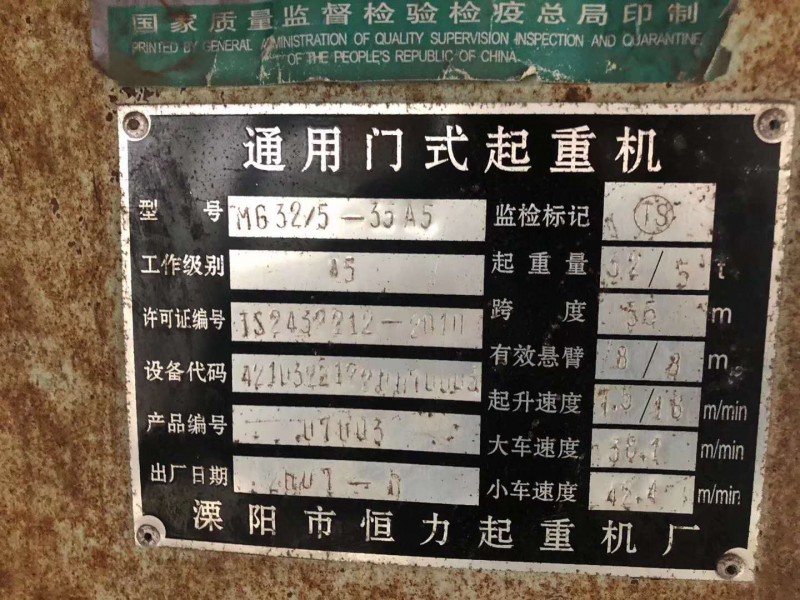 国家质量监督检验检疫总局印制
PRINTED BY GENERAL ADMINISTRATION OF QUALITY SUPERVISION INSPECTION AND QUARANTINE
OF THE PEOPLE'S REPUBLIC OF CHINA
通用门式起重机
型 号 MG32/5-35A5 监检标记 TS
工作级别 A5 起重量 32/5 t
许可证编号 TS2432212-2010 跨 度 35 m
设备代码 有效悬臂 8/8 m
产品编号 07003 起升速度 m/min
出厂日期 大车速度 m/min
小车速度 m/min
溧阳市恒力起重机厂